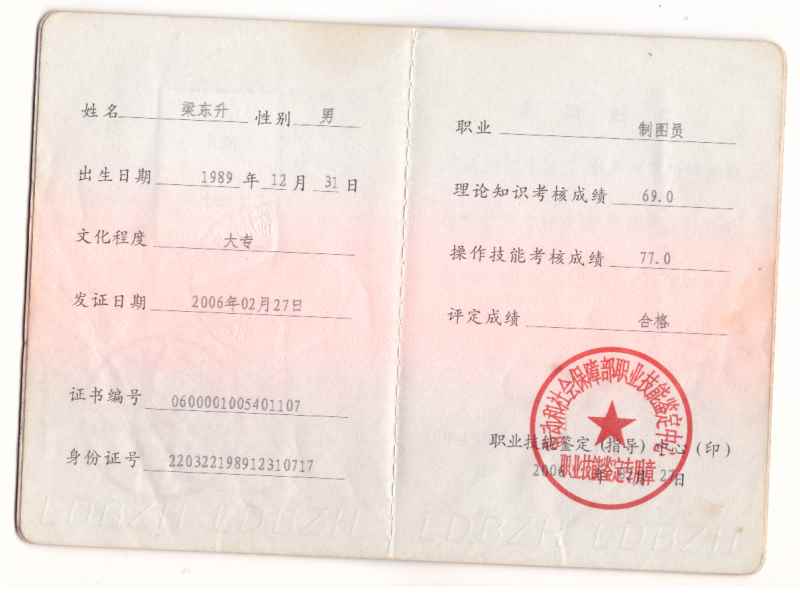 姓名 梁东升 性别 男
出生日期 1989 年 12 月 31 日
文化程度 大专
发证日期 2006年02月27日
证书编号 0600001005401107
身份证号 220322198912310717
职业 制图员
理论知识考核成绩 69.0
操作技能考核成绩 77.0
评定成绩 合格
劳动和社会保障部职业技能鉴定中心
职业技能鉴定（指导）中心（印）
职业技能鉴定专用章
2006 年 02月 27日
LDBZH LDBZH LDBZH LDBZH